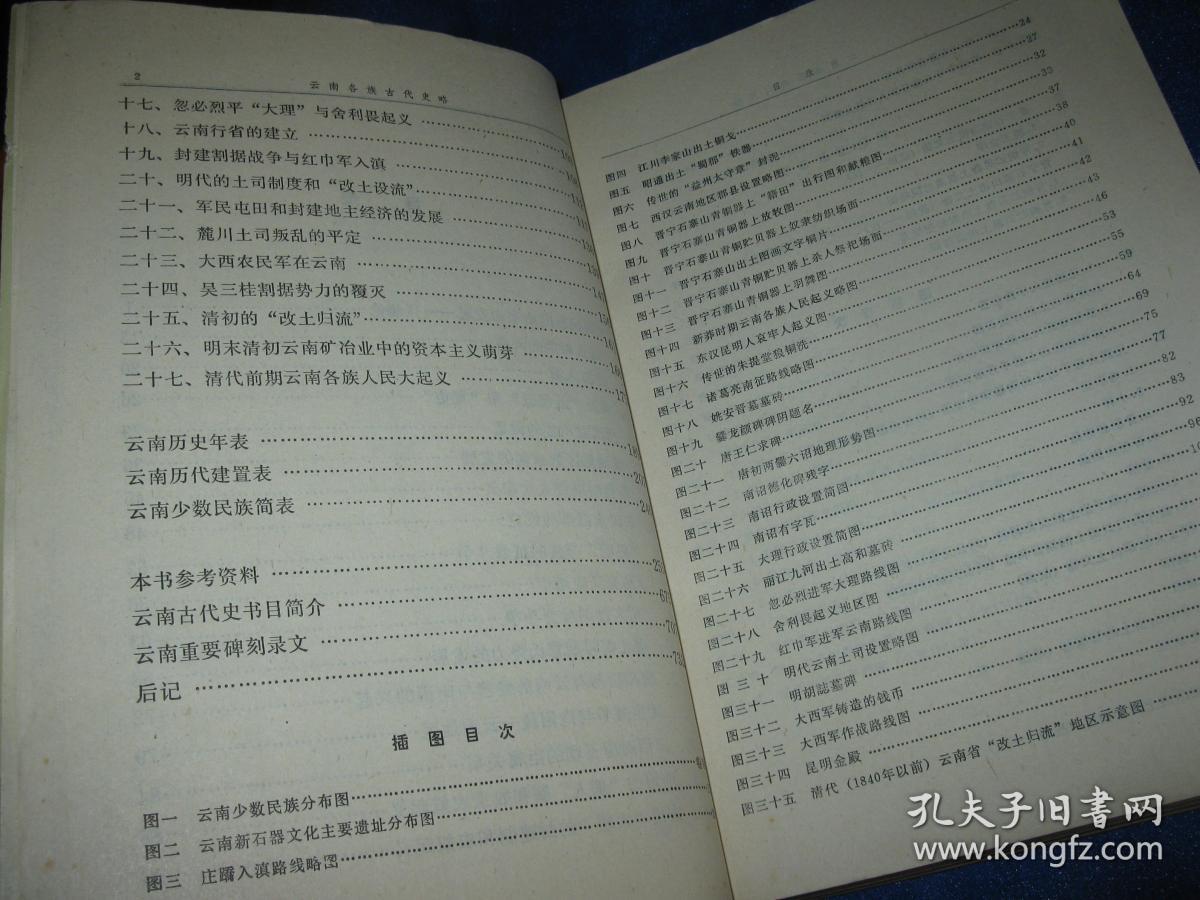 2
云南各族古代史略
十七、忽必烈平“大理”与舍利畏起义
十八、云南行省的建立
十九、封建割据战争与红巾军入滇
二十、明代的土司制度和“改土设流”
二十一、军民屯田和封建地主经济的发展
二十二、麓川土司叛乱的平定
二十三、大西农民军在云南
二十四、吴三桂割据势力的覆灭
二十五、清初的“改土归流”
二十六、明末清初云南矿冶业中的资本主义萌芽
二十七、清代前期云南各族人民大起义
云南历史年表
云南历代建置表
云南少数民族简表
本书参考资料
云南古代史书目简介
云南重要碑刻录文
后记
插图目次
图一 云南少数民族分布图
图二 云南新石器文化主要遗址分布图
图三 庄蹻入滇路线略图
图四 江川李家山出土铜戈 24
图五 昭通出土“蜀郡”铁器 27
图六 传世的“益州太守章”封泥 32
图七 西汉云南地区郡县设置略图 33
图八 晋宁石寨山青铜器上“籍田”出行图和献粮图 37
图九 晋宁石寨山青铜器上放牧图 38
图十 晋宁石寨山青铜贮贝器上奴隶纺织场面 40
图十一 晋宁石寨山出土图画文字铜片 41
图十二 晋宁石寨山青铜贮贝器上杀人祭祀场面 42
图十三 晋宁石寨山青铜器上羽舞图 43
图十四 新莽时期云南各族人民起义略图 46
图十五 东汉昆明人哀牢人起义图 53
图十六 传世的朱提堂狼铜洗 55
图十七 诸葛亮南征路线略图 59
图十八 姚安晋墓墓砖 64
图十九 爨龙颜碑碑阴题名 69
图二十 唐王仁求碑 75
图二十一 唐初两爨六诏地理形势图 77
图二十二 南诏德化碑残字 82
图二十三 南诏行政设置简图 83
图二十四 南诏有字瓦 92
图二十五 大理行政设置简图 96
图二十六 丽江九河出土高和墓砖
图二十七 忽必烈进军大理路线图
图二十八 舍利畏起义地区图
图二十九 红巾军进军云南路线图
图三十 明代云南土司设置略图
图三十一 明胡誌墓碑
图三十二 大西军铸造的钱币
图三十三 大西军作战路线图
图三十四 昆明金殿
图三十五 清代(1840年以前)云南省“改土归流”地区示意图
孔夫子旧书网
www.kongfz.com